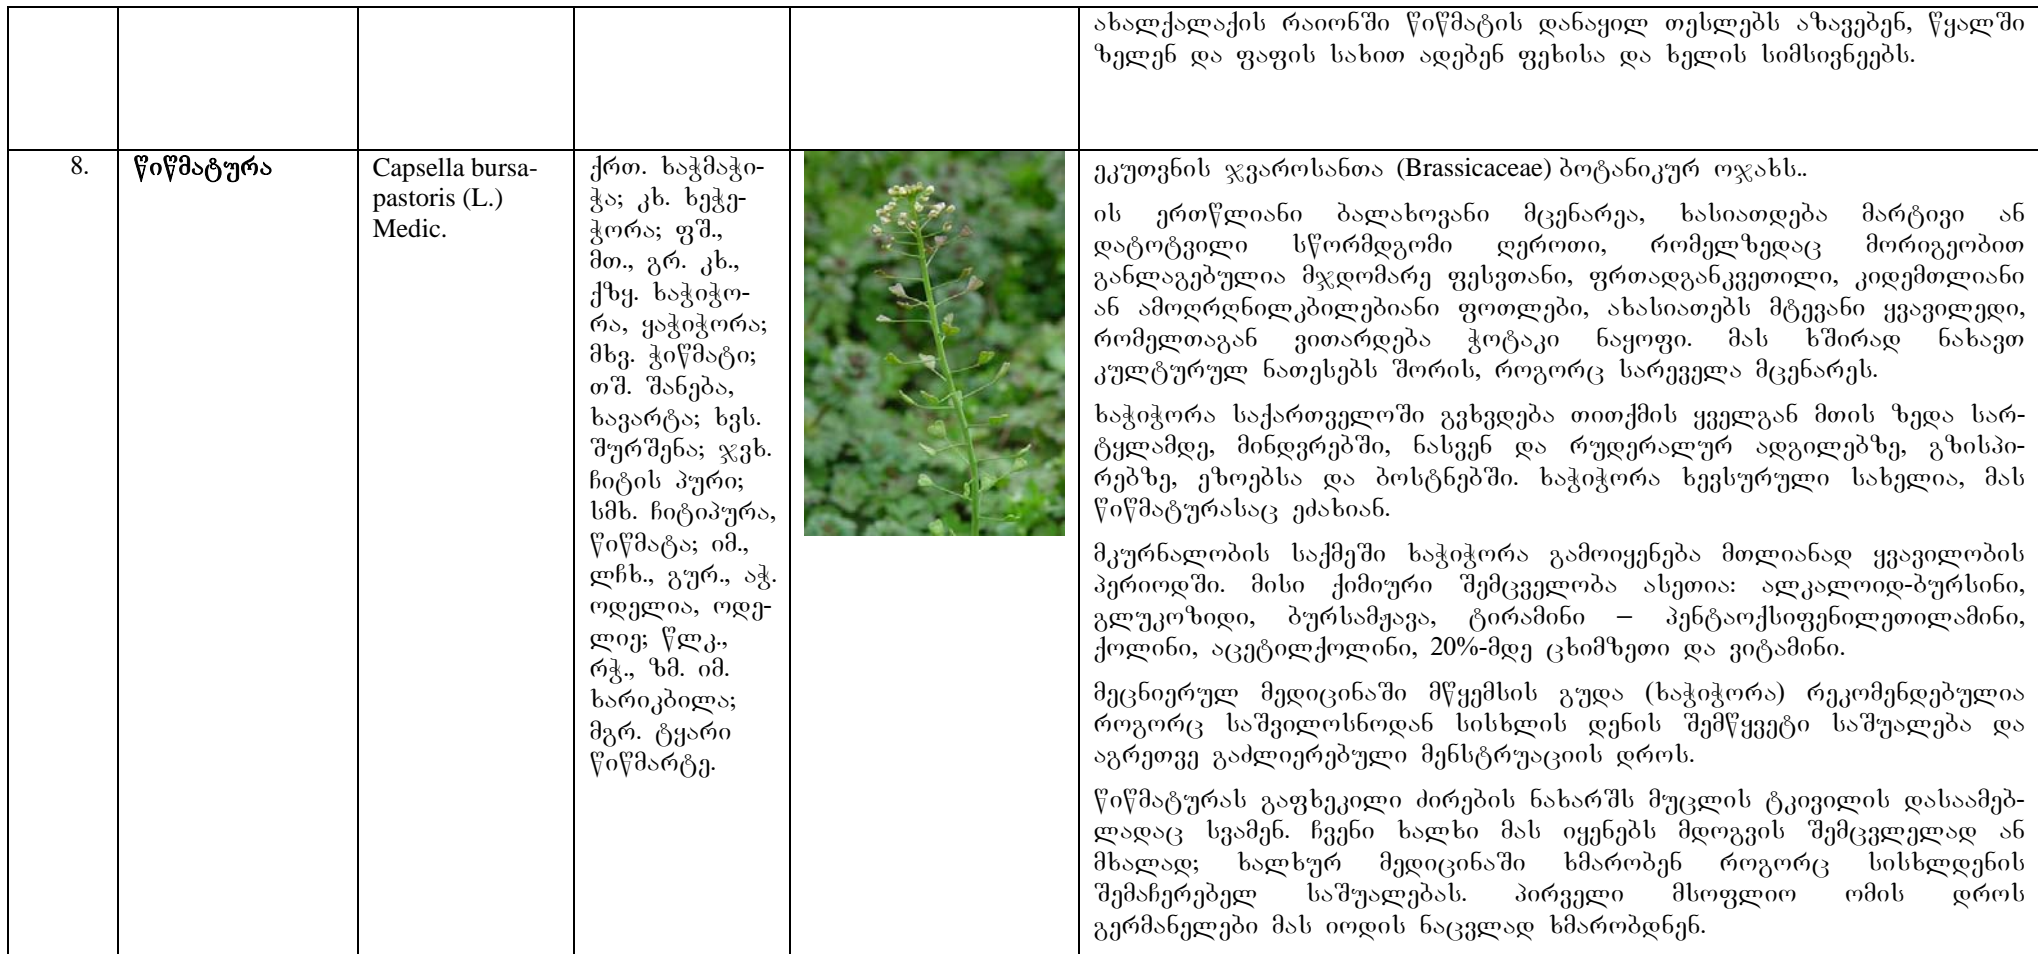 ახალქალაქის რაიონში წიწმატის დანაყილ თესლებს აზავებენ, წყალში
ზელენ და ფაფის სახით ადებენ ფეხისა და ხელის სიმსივნეებს.
8.
წიწმატურა
Capsella bursa-
pastoris (L.)
Medic.
ქრთ. ხაჭმაჭი-
ჭა; კხ. ხეჭე-
ჭორა; ფშ.,
მთ., გრ. კხ.,
ქზყ. ხაჭიჭო-
რა, ყაჭიჭორა;
მხვ. ჭიწმატი;
თშ. შანება,
ხავარტა; ხვს.
შურშენა; ჯვხ.
ჩიტის პური;
სმხ. ჩიტიპურა,
წიწმატა; იმ.,
ლჩხ., გურ., აჭ.
ოდელია, ოდე-
ლიე; წლკ.,
რჭ., ზმ. იმ.
ხარიკბილა;
მგრ. ტყარი
წიწმარტე.
ეკუთვნის ჯვაროსანთა (Brassicaceae) ბოტანიკურ ოჯახს..
ის ერთწლიანი ბალახოვანი მცენარეა, ხასიათდება მარტივი ან
დატოტვილი სწორმდგომი ღეროთი, რომელზედაც მორიგეობით
განლაგებულია მჯდომარე ფესვთანი, ფრთადგანკვეთილი, კიდემთლიანი
ან ამოღრღნილკბილებიანი ფოთლები, ახასიათებს მტევანი ყვავილედი,
რომელთაგან ვითარდება ჭოტაკი ნაყოფი. მას ხშირად ნახავთ
კულტურულ ნათესებს შორის, როგორც სარეველა მცენარეს.
ხაჭიჭორა საქართველოში გვხვდება თითქმის ყველგან მთის ზედა სარ-
ტყლამდე, მინდვრებში, ნასვენ და რუდერალურ ადგილებზე, გზისპი-
რებზე, ეზოებსა და ბოსტნებში. ხაჭიჭორა ხევსურული სახელია, მას
წიწმატურასაც ეძახიან.
მკურნალობის საქმეში ხაჭიჭორა გამოიყენება მთლიანად ყვავილობის
პერიოდში. მისი ქიმიური შემცველობა ასეთია: ალკალოიდ-ბურსინი,
გლუკოზიდი, ბურსამჟავა, ტირამინი – პენტაოქსიფენილეთილამინი,
ქოლინი, აცეტილქოლინი, 20%-მდე ცხიმზეთი და ვიტამინი.
მეცნიერულ მედიცინაში მწყემსის გუდა (ხაჭიჭორა) რეკომენდებულია
როგორც საშვილოსნოდან სისხლის დენის შემწყვეტი საშუალება და
აგრეთვე გაძლიერებული მენსტრუაციის დროს.
წიწმატურას გაფხეკილი ძირების ნახარშს მუცლის ტკივილის დასაამებ-
ლადაც სვამენ. ჩვენი ხალხი მას იყენებს მდოგვის შემცვლელად ან
მხალად; ხალხურ მედიცინაში ხმარობენ როგორც სისხლდენის
შემაჩერებელ საშუალებას. პირველი მსოფლიო ომის დროს
გერმანელები მას იოდის ნაცვლად ხმარობდნენ.